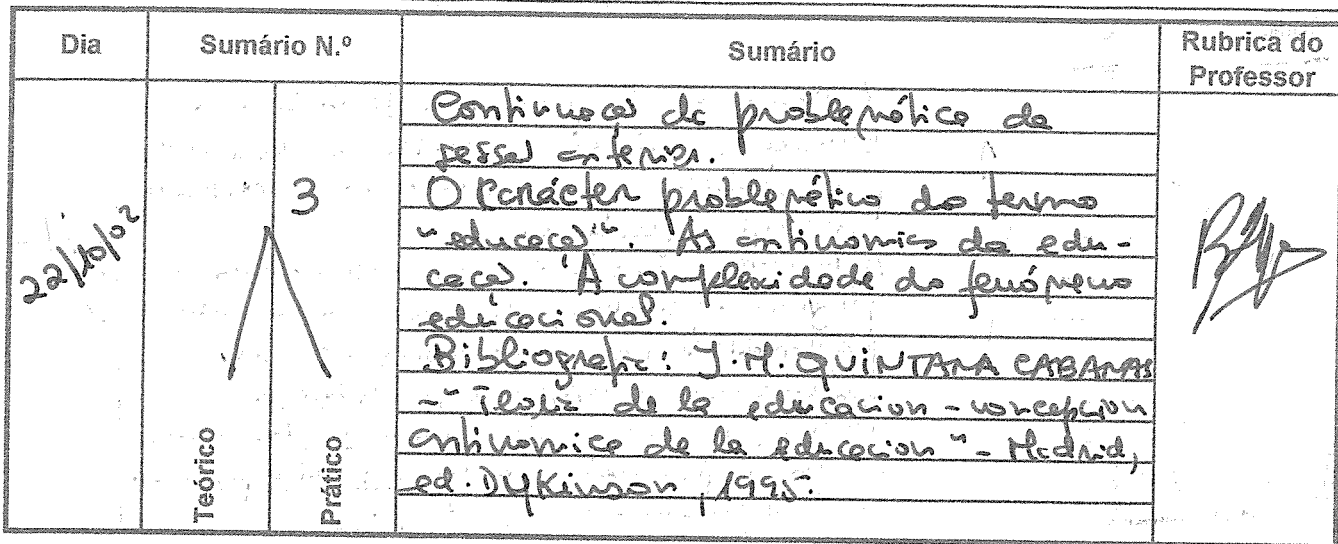 Dia
Sumário N.º
Sumário
Rubrica do
Professor
22/10/02
3
Teórico
Prático
Continuação da problemática da
sessão anterior.
O Carácter problemático do termo
"educação". As antinomias da edu-
cação. A complexidade do fenómeno
educacional.
Bibliografia: J.M. QUINTANA CABANAS
-"Teoria de la educacion - concepcion
antinomica de la educacion" - Madrid,
ed. Dykinson, 1995.